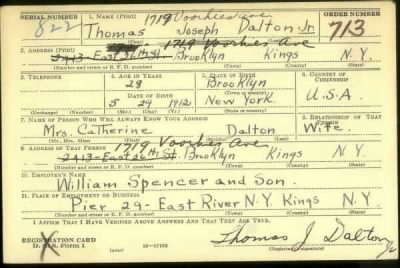 SERIAL NUMBER 1. NAME (Print) 1719 Voorhies Ave ORDER NUMBER
822 Thomas Joseph Dalton Jr. 713
(First) (Middle) (Last)
2. ADDRESS (Print) 1719 Voorhies Ave
2413-East 26th St. Brooklyn Kings N.Y.
(Number and street or R. F. D. number) (Town) (County) (State)
3. TELEPHONE 4. AGE IN YEARS 5. PLACE OF BIRTH 6. COUNTRY OF CITIZENSHIP
28 Brooklyn
DATE OF BIRTH (Town or county)
5 29 1912 New York. U.S.A.
(Exchange) (Number) (Mo.) (Day) (Yr.) (State or country)
7. NAME OF PERSON WHO WILL ALWAYS KNOW YOUR ADDRESS 8. RELATIONSHIP OF THAT PERSON
Mrs. Catherine Dalton Wife.
(Mr., Mrs., Miss) (First) (Middle) (Last)
9. ADDRESS OF THAT PERSON 1719 Voorhies Ave
2413-East 26th St. Brooklyn Kings N.Y.
(Number and street or R. F. D. number) (Town) (County) (State)
10. EMPLOYER'S NAME
William Spencer and Son.
11. PLACE OF EMPLOYMENT OR BUSINESS
Pier 29- East River N.Y. Kings N.Y.
(Number and street or R. F. D. number) (Town) (County) (State)
I AFFIRM THAT I HAVE VERIFIED ABOVE ANSWERS AND THAT THEY ARE TRUE.
REGISTRATION CARD
D. S. S. Form 1 (over) Thomas J Dalton Jr
(Registrant's signature)